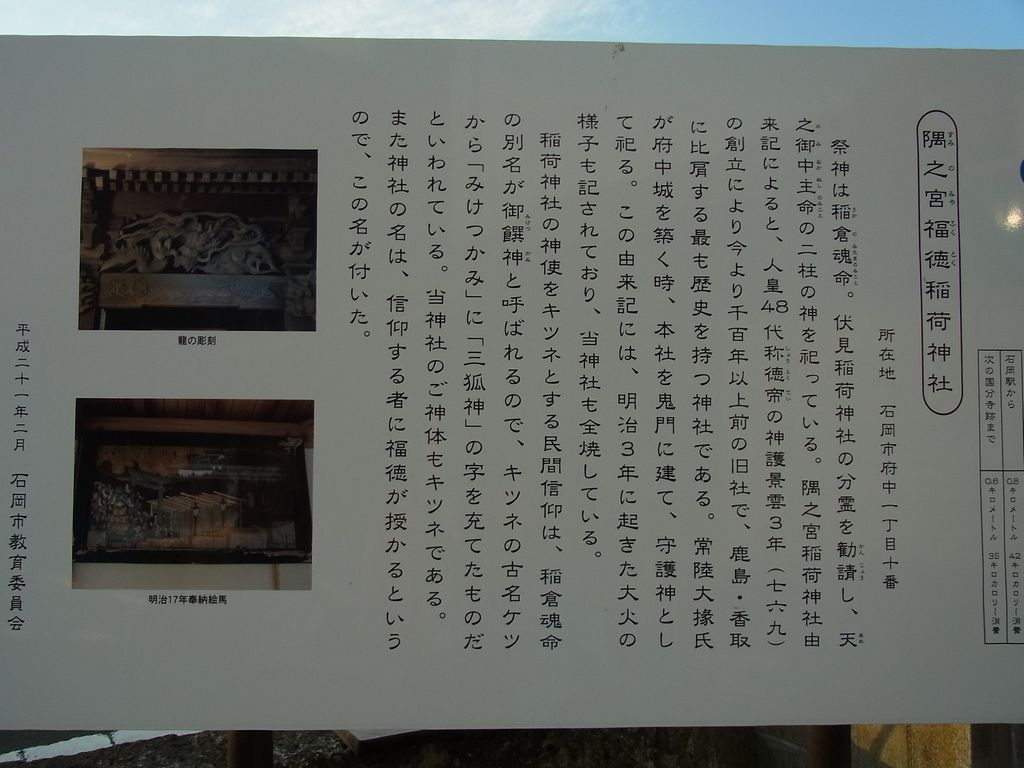 石岡駅から 0.8キロメートル 42キロカロリー消費
次の国分寺跡まで 0.6キロメートル 35キロカロリー消費
隅之宮福徳稲荷神社
所在地 石岡市府中一丁目十番
祭神は稲倉魂命。伏見稲荷神社の分霊を勧請し、天
之御中主命の二柱の神を祀っている。隅之宮稲荷神社由
来記によると、人皇48代称徳帝の神護景雲3年(七六九)
の創立により今より千百年以上前の旧社で、鹿島・香取
に比肩する最も歴史を持つ神社である。常陸大掾氏
が府中城を築く時、本社を鬼門に建て、守護神とし
て祀る。この由来記には、明治3年に起きた大火の
様子も記されており、当神社も全焼している。
稲荷神社の神使をキツネとする民間信仰は、稲倉魂命
の別名が御饌神と呼ばれるので、キツネの古名ケツ
から「みけつかみ」に「三狐神」の字を充てたものだ
といわれている。当神社のご神体もキツネである。
また神社の名は、信仰する者に福徳が授かるという
ので、この名が付いた。
龍の彫刻
明治17年奉納絵馬
平成二十一年二月 石岡市教育委員会